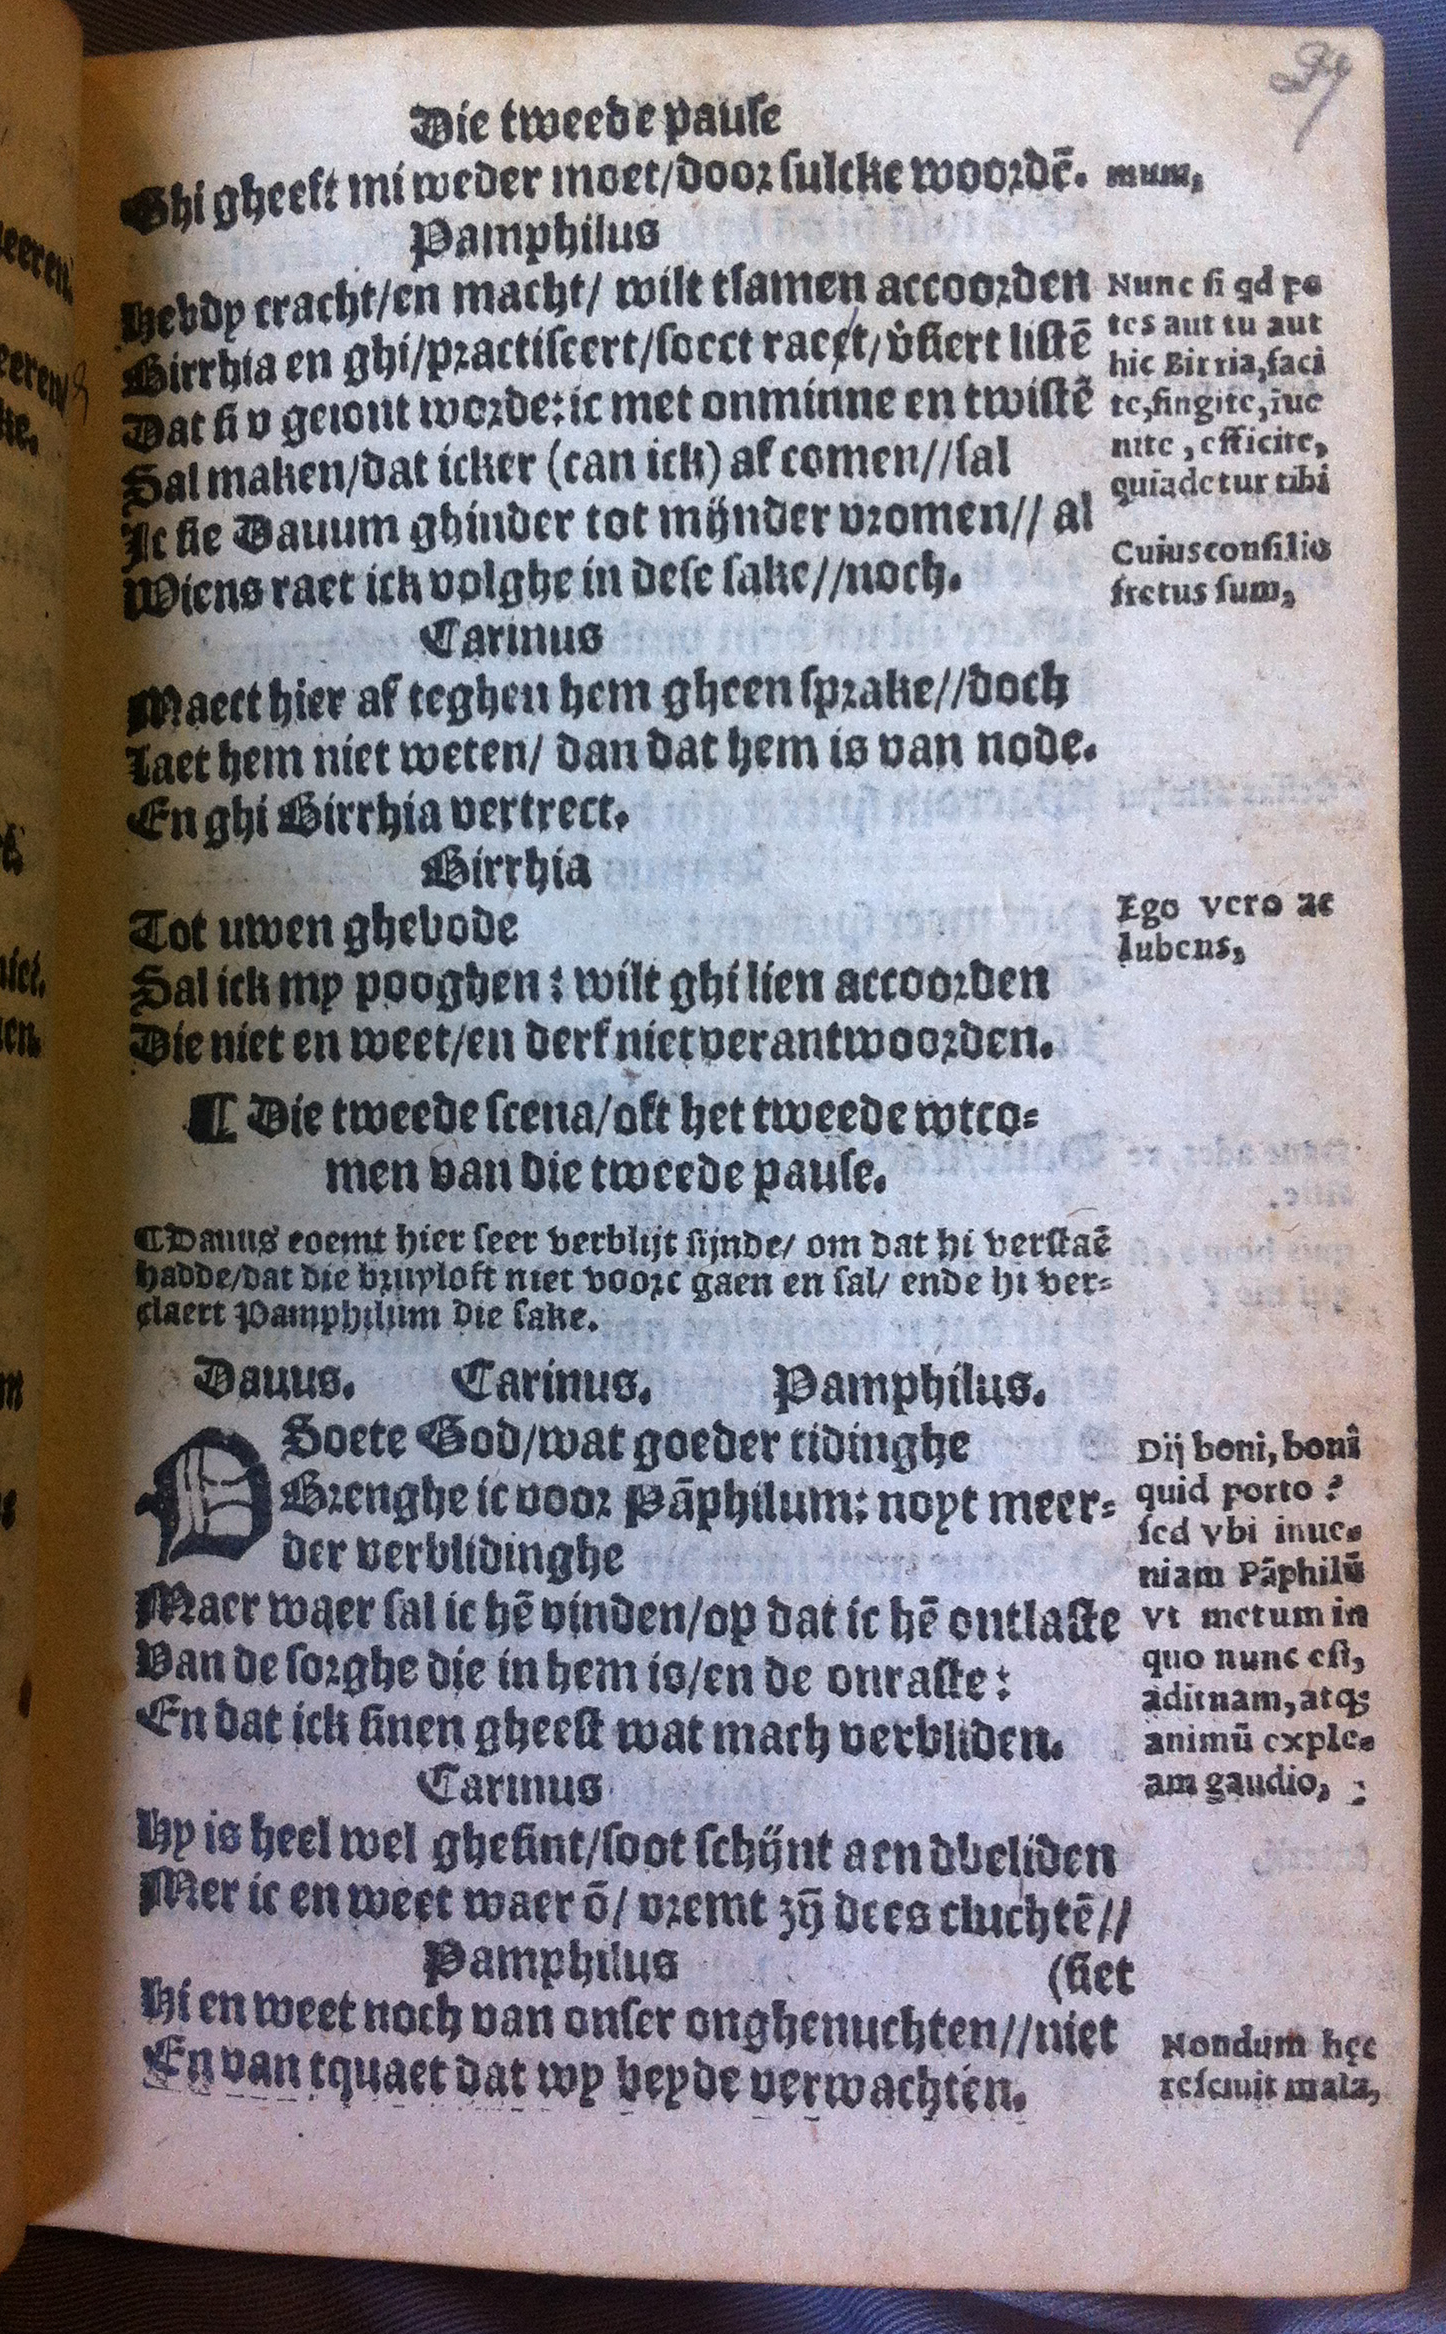 Die tweede pause
Ghi gheeft mi weder moet/door sulcke woordē.
Pamphilus
Hebdy cracht/en macht/ wilt tsamen accoorden
Birrhia en ghi/practiseert/soect raet/v̂siert listē
Dat si v geiont worde: ic met onminne en twistē
Sal maken/dat icker (can ick) af comen//sal
Ic sie Dauum ghinder tot mijnder vromen// al
Wiens raet ick volghe in dese sake//noch.
Carinus
Maect hier af teghen hem gheen sprake//doch
Laet hem niet weten/ dan dat hem is van node.
En ghi Birrhia vertrect.
Birrhia
Tot uwen ghebode
Sal ick my pooghen: wilt ghi lien accoorden
Die niet en weet/en derf niet verantwoorden.
¶ Die tweede scena/oft het tweede wtco=
men van die tweede pause.
¶ Dauus coemt hier seer verblijt sijnde/ om dat hi verstaē
hadde/dat die bruyloft niet voort gaen en sal/ ende hi ver=
claert Pamphilum die sake.
Dauus. Carinus. Pamphilus.
O Soete God/wat goeder tidinghe
Brenghe ic voor Pāphilum: noyt meer=
der verblidinghe
Maer waer sal ic hē vinden/op dat ic hē ontlaste
Van de sorghe die in hem is/en de onraste:
En dat ick sinen gheest wat mach verbliden.
Carinus
Hy is heel wel ghesint/soot schijnt aen dbeliden
Mer ic en weet waer ō/ vremt zȳ dees cluchtē//
(siet
Pamphilus
Hi en weet noch van onser onghenuchten//niet
En van tquaet dat wy beyde verwachten.
mum,
Nunc si qd po
tes aut tu aut
hic Birria, faci
te, fingite, iue
nite, efficite,
qui a detur tibi
Cuius consilio
fretus sum,
Ego vero ac
lubens,
Dij boni, boni
quid porto?
sed vbi inue=
niam Pāphilū
vt metum in
quo nunc est,
adimam, atq;
animū exple=
am gaudio,
Nondum hęc
resciuit mala,